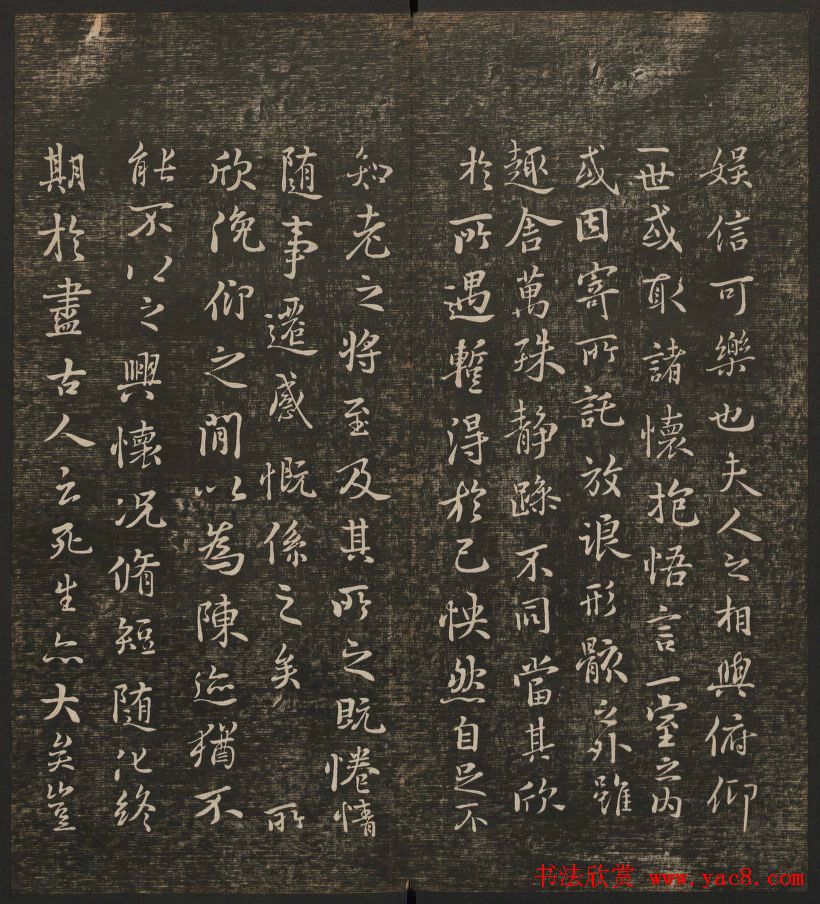 娛信可樂也夫人之相與俯仰
一世或取諸懷抱悟言一室之内
或因寄所託放浪形骸之外雖
趣舍萬殊静躁不同當其欣
於所遇暫得於己怏然自足不
知老之将至及其所之既惓情
随事遷感慨係之矣 所
欣俛仰之間以為陳迹猶不
能不以之興懷况脩短随化終
期於盡古人云死生亦大矣豈
书法欣赏 www.yac8.com